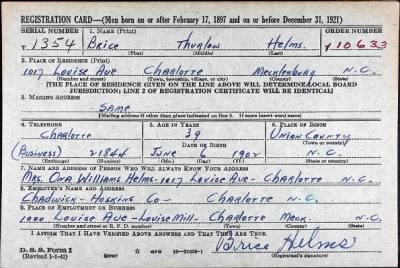 REGISTRATION CARD—(Men born on or after February 17, 1897 and on or before December 31, 1921)
SERIAL NUMBER 1. NAME (Print) ORDER NUMBER
T 1354 Brice Thurlow Helms. 10633
(First) (Middle) (Last)
2. PLACE OF RESIDENCE (Print)
1017 Louise Ave Charlotte Mecklenburg N.C.
(Number and street) (Town, township, village, or city) (County) (State)
[THE PLACE OF RESIDENCE GIVEN ON THE LINE ABOVE WILL DETERMINE LOCAL BOARD
JURISDICTION; LINE 2 OF REGISTRATION CERTIFICATE WILL BE IDENTICAL]
3. MAILING ADDRESS
Same
[Mailing address if other than place indicated on line 2. If same insert word same]
4. TELEPHONE 5. AGE IN YEARS 6. PLACE OF BIRTH
Charlotte 39 Union County
DATE OF BIRTH (Town or county)
(Business) 21844 June 6 1902 N.C.
(Exchange) (Number) (Mo.) (Day) (Yr.) (State or country)
7. NAME AND ADDRESS OF PERSON WHO WILL ALWAYS KNOW YOUR ADDRESS
Mrs. Ora Williams Helms-1017 Louise Ave- Charlotte N.C.
8. EMPLOYER'S NAME AND ADDRESS
Chadwick-Hoskins Co- Charlotte N.C.
9. PLACE OF EMPLOYMENT OR BUSINESS
1000 Louise Ave-Louise Mill- Charlotte Meck. N.C.
(Number and street or R. F. D. number) (Town) (County) (State)
I AFFIRM THAT I HAVE VERIFIED ABOVE ANSWERS AND THAT THEY ARE TRUE.
D. S. S. Form 1
(Revised 1-1-42) (over)
Brice Helms
(Registrant's signature)